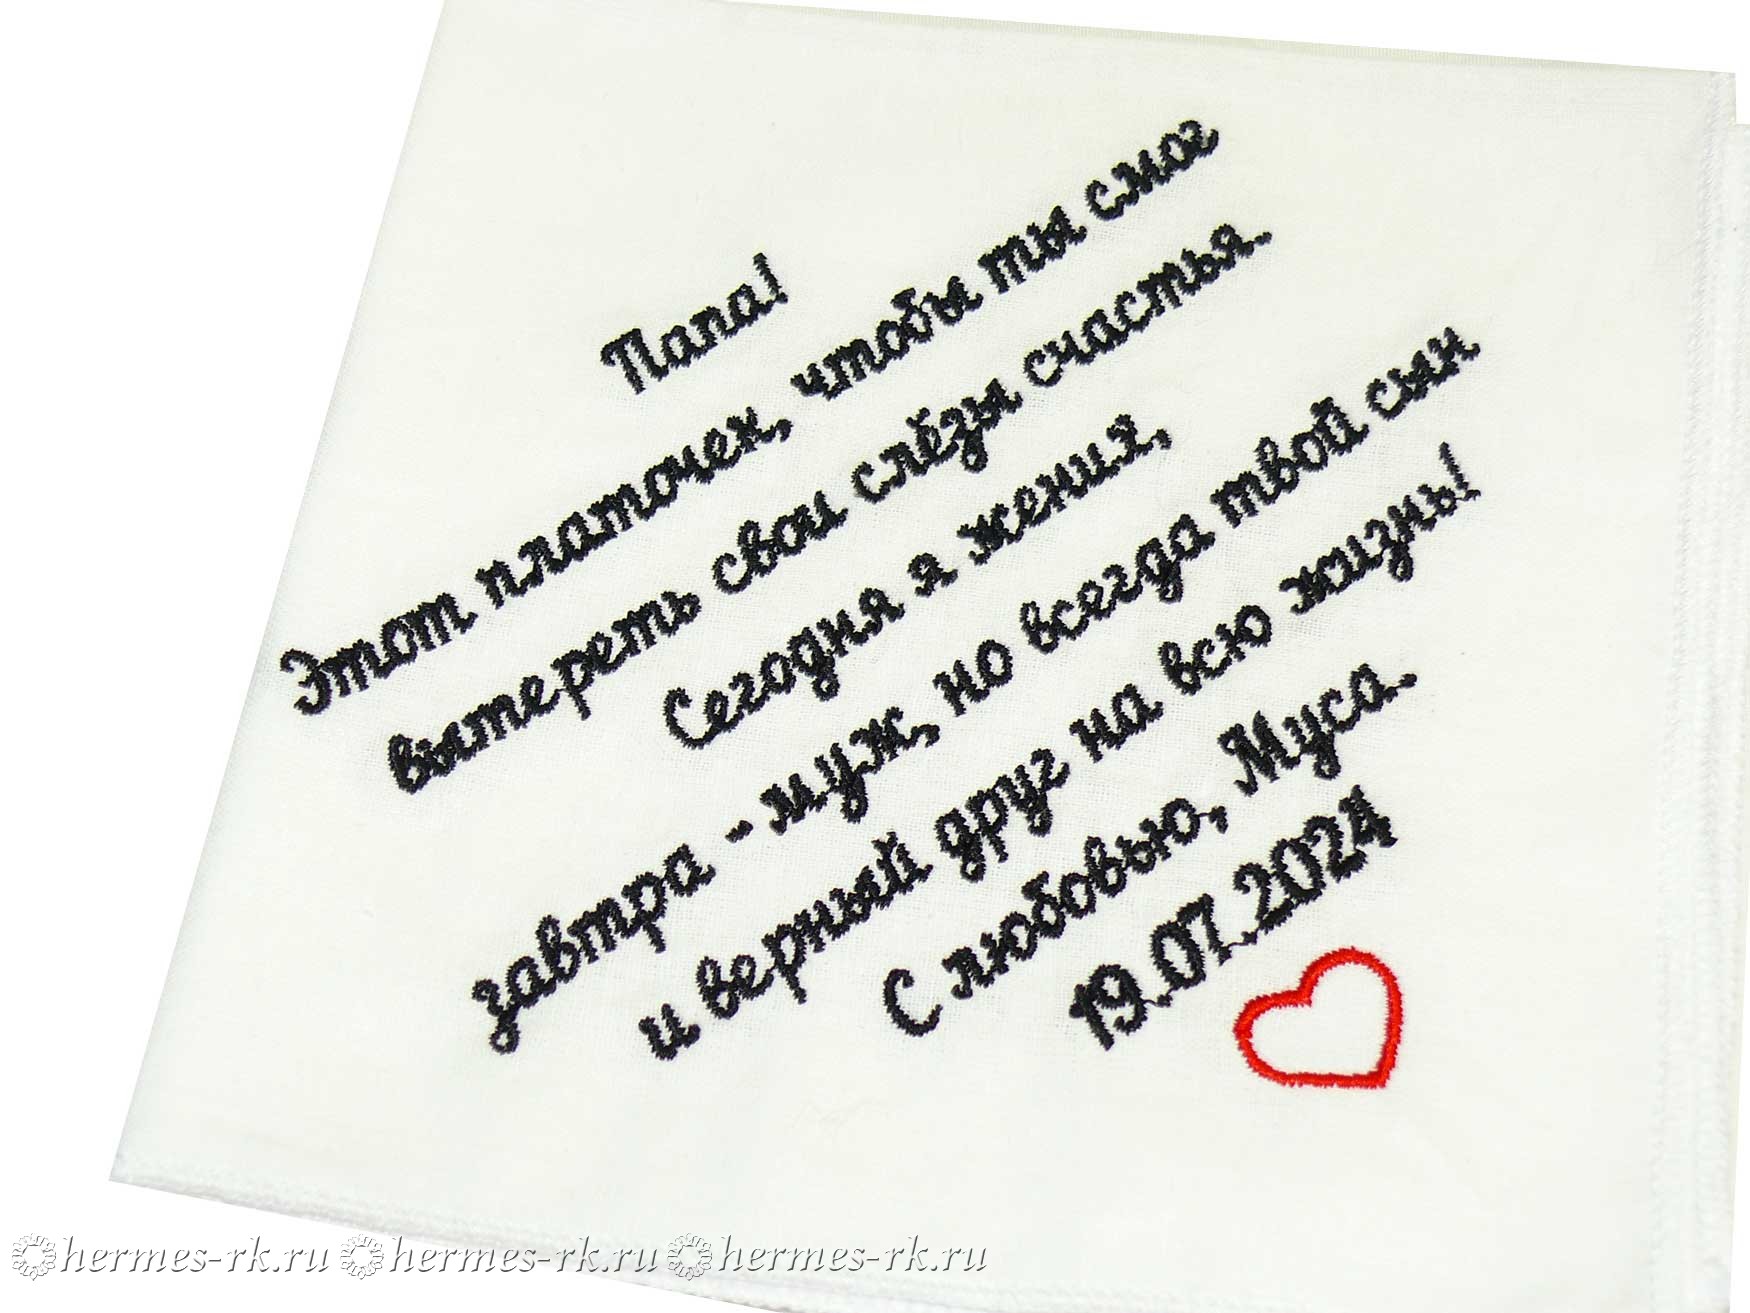 Папа!
Этот платочек, чтобы ты смог
вытереть свои слёзы счастья.
Сегодня я жених,
завтра - муж, но всегда твой сын
и верный друг на всю жизнь!
С любовью, Муса.
19.07.2024
hermes-rk.ru hermes-rk.ru hermes-rk.ru